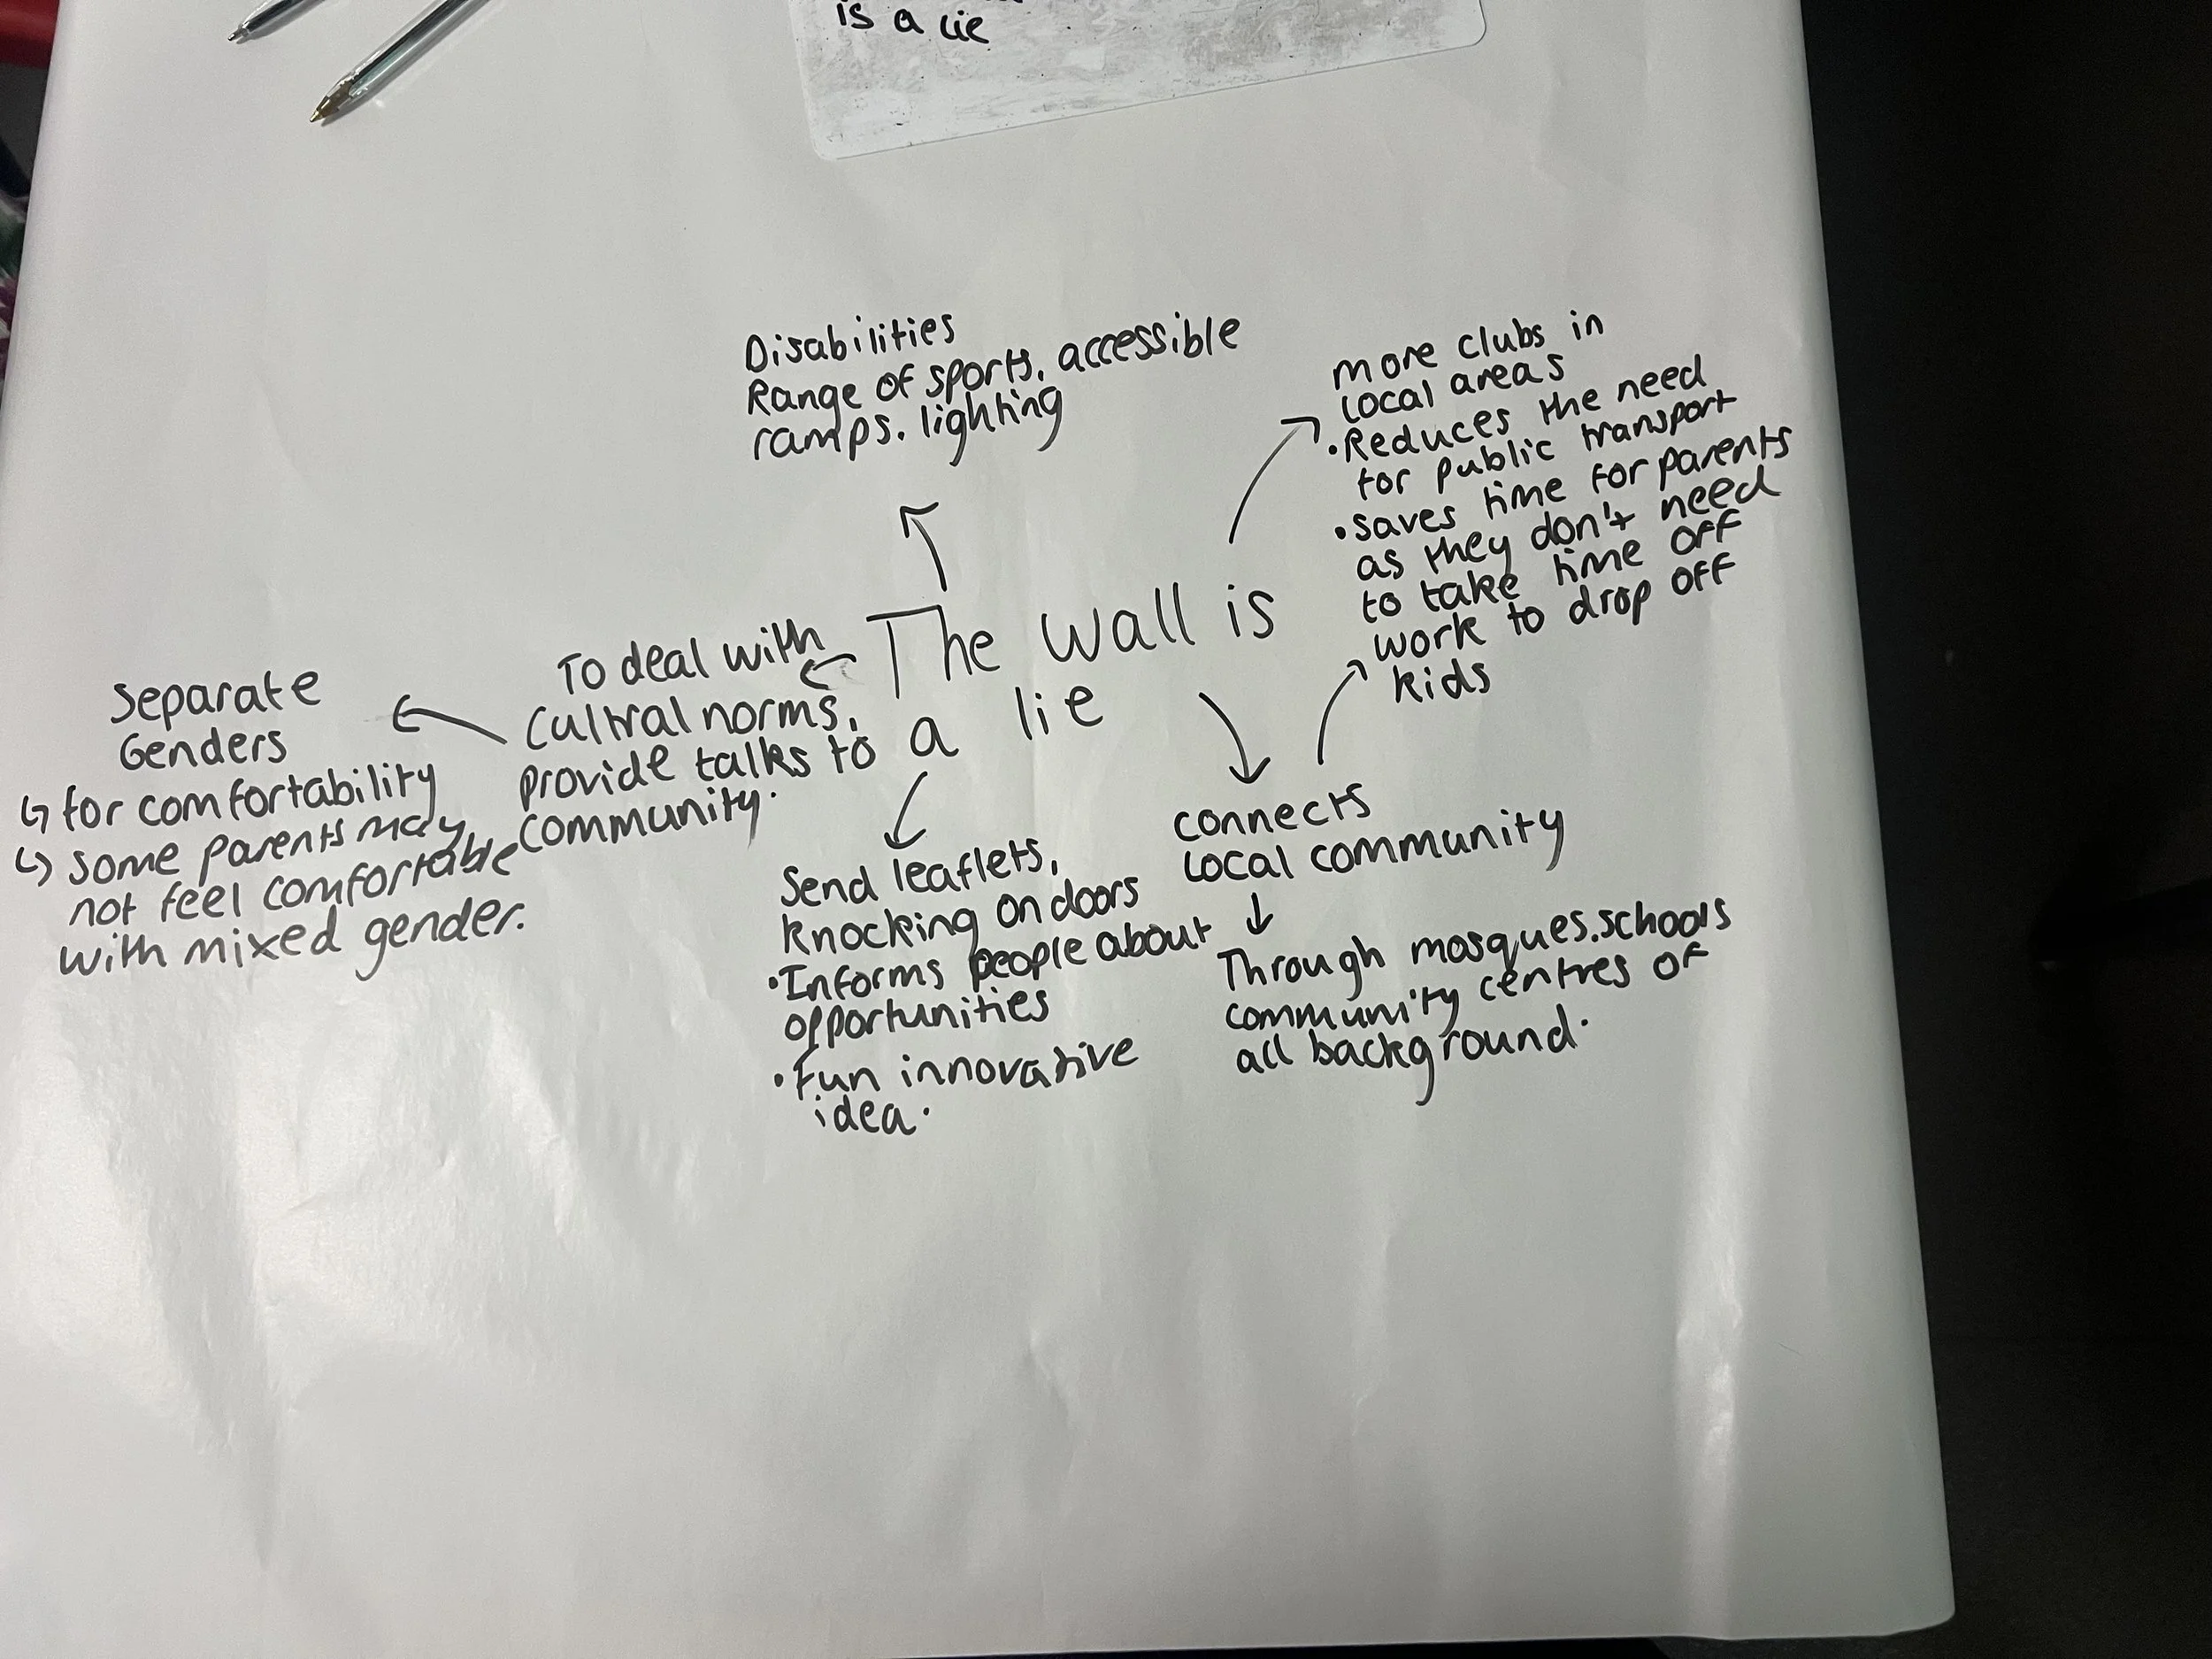 is a lie
Disabilities
Range of sports, accessible
ramps. lighting
more clubs in
local areas
• Reduces the need
for public transport
• saves time for parents
as they don't need
to take time off
work to drop off
kids
The wall is
a lie
To deal with
cultral norms,
provide talks to
community.
Separate
Genders
↳ for comfortability
↳ some parents may
not feel comfortable
with mixed gender.
Send leaflets,
knocking on doors
• Informs people about
opportunities
• Fun innovative
idea.
connects
local community
Through mosques.schools
community centres of
all background.